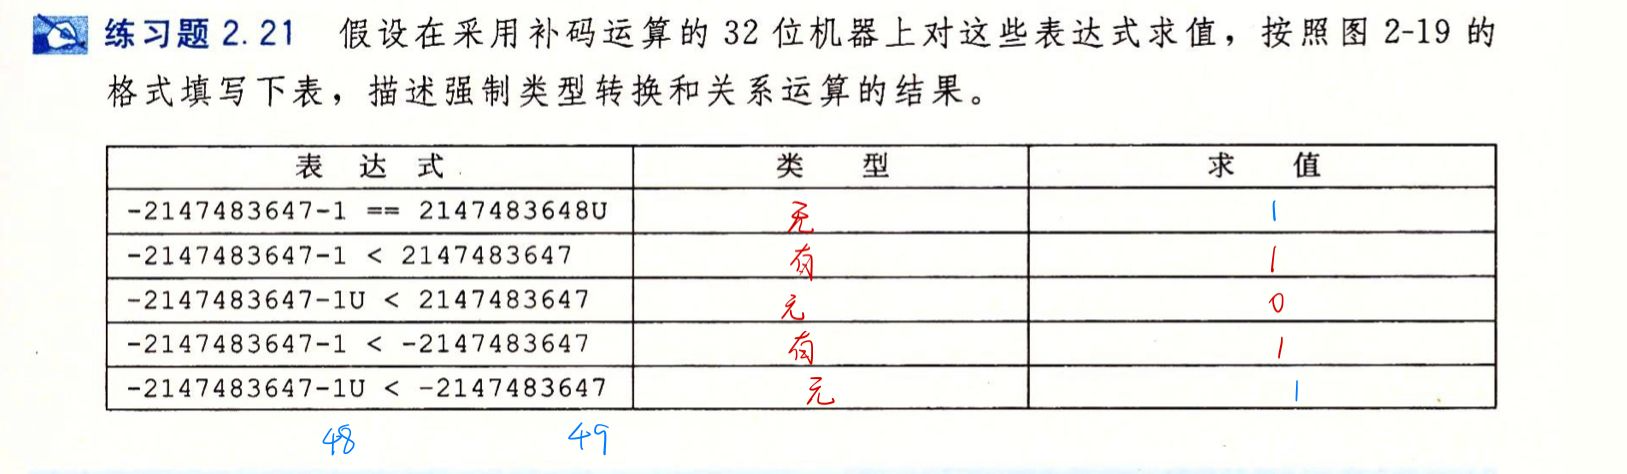 练习题 2.21 假设在采用补码运算的 32 位机器上对这些表达式求值，按照图 2-19 的
格式填写下表，描述强制类型转换和关系运算的结果。
表 达 式 类 型 求 值
-2147483647-1 == 2147483648U 无 1
-2147483647-1 < 2147483647 有 1
-2147483647-1U < 2147483647 无 0
-2147483647-1 < -2147483647 有 1
-2147483647-1U < -2147483647 无 1
48 49